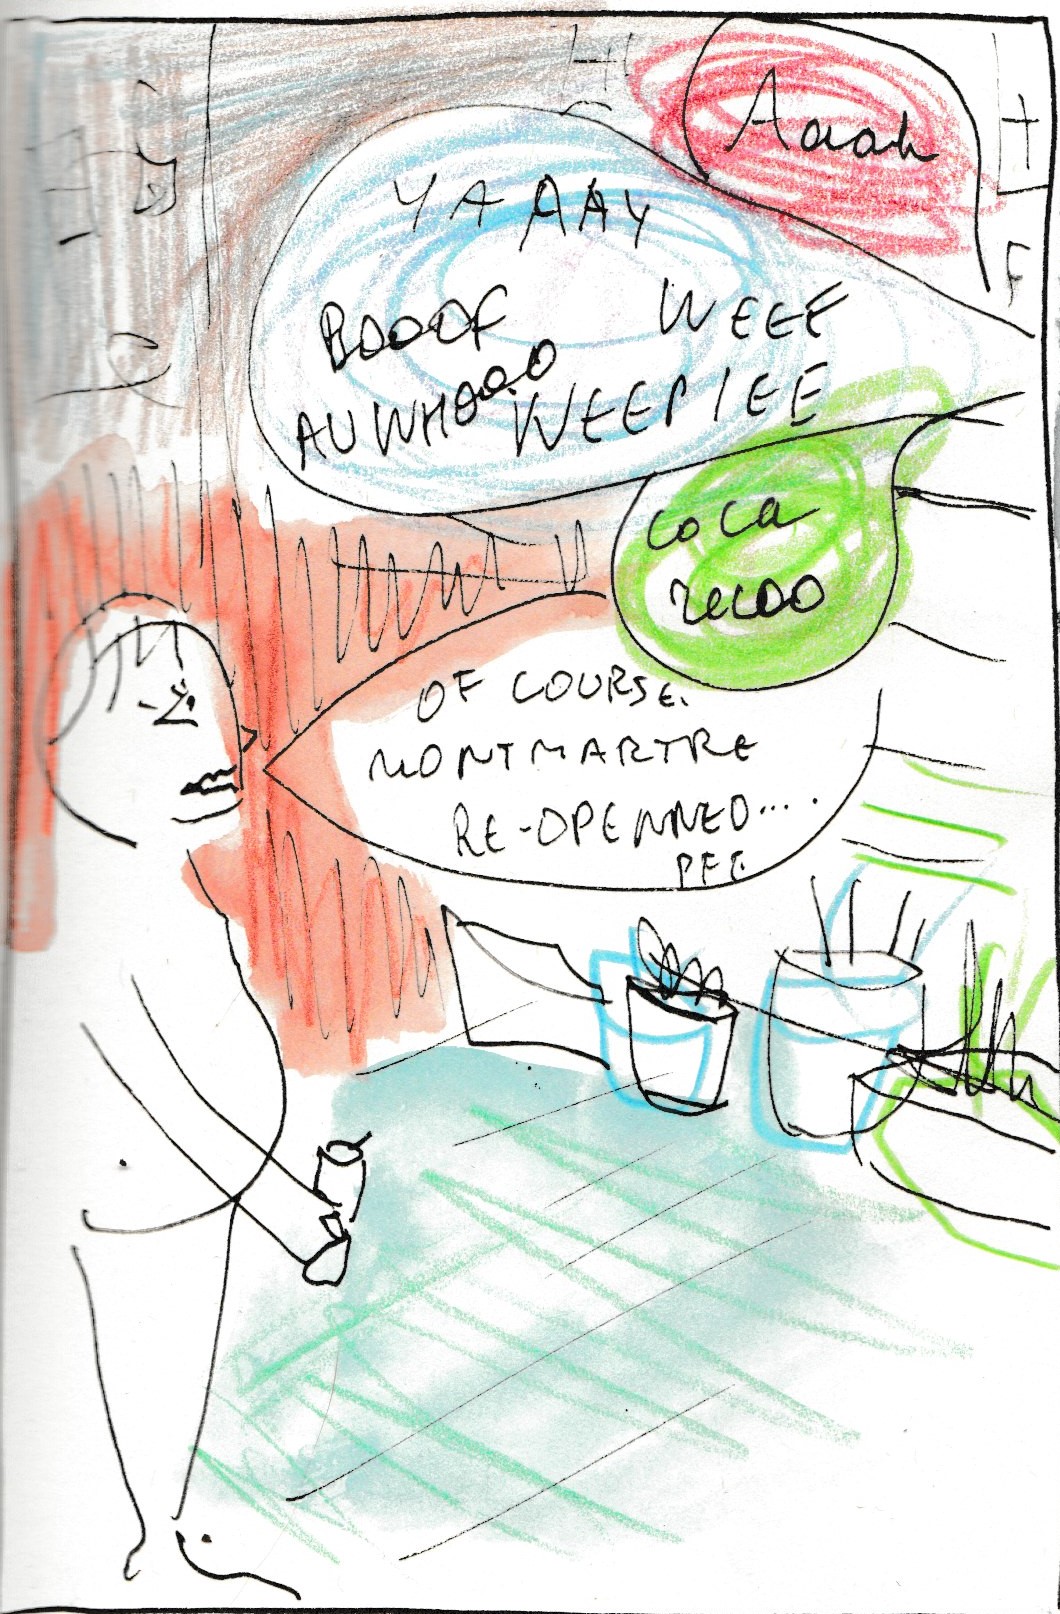 Aaah
YAAAAY
BOOOF WEEE
AUWHOOO WEEPIEE
COCA
RICOO
OF COURSE.
MONTMARTRE
RE-OPENNED....
PFF